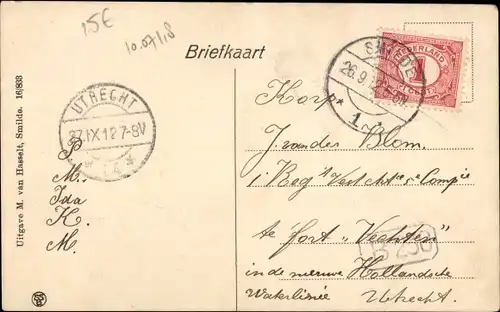 15€
10.07/18
Briefkaart
SMILDE
26.9.12
NEDERLAND
1
UTRECHT
27.IX.12 7-8V
Uitgave M. van Hasselt, Smilde. 16/833
P
M.
Ida
K.
M.
Korp
J. van der Blom.
1 Reg
Comp
te fort „Vechten"
in de nieuwe Hollandsche
Waterlinie Utrecht.